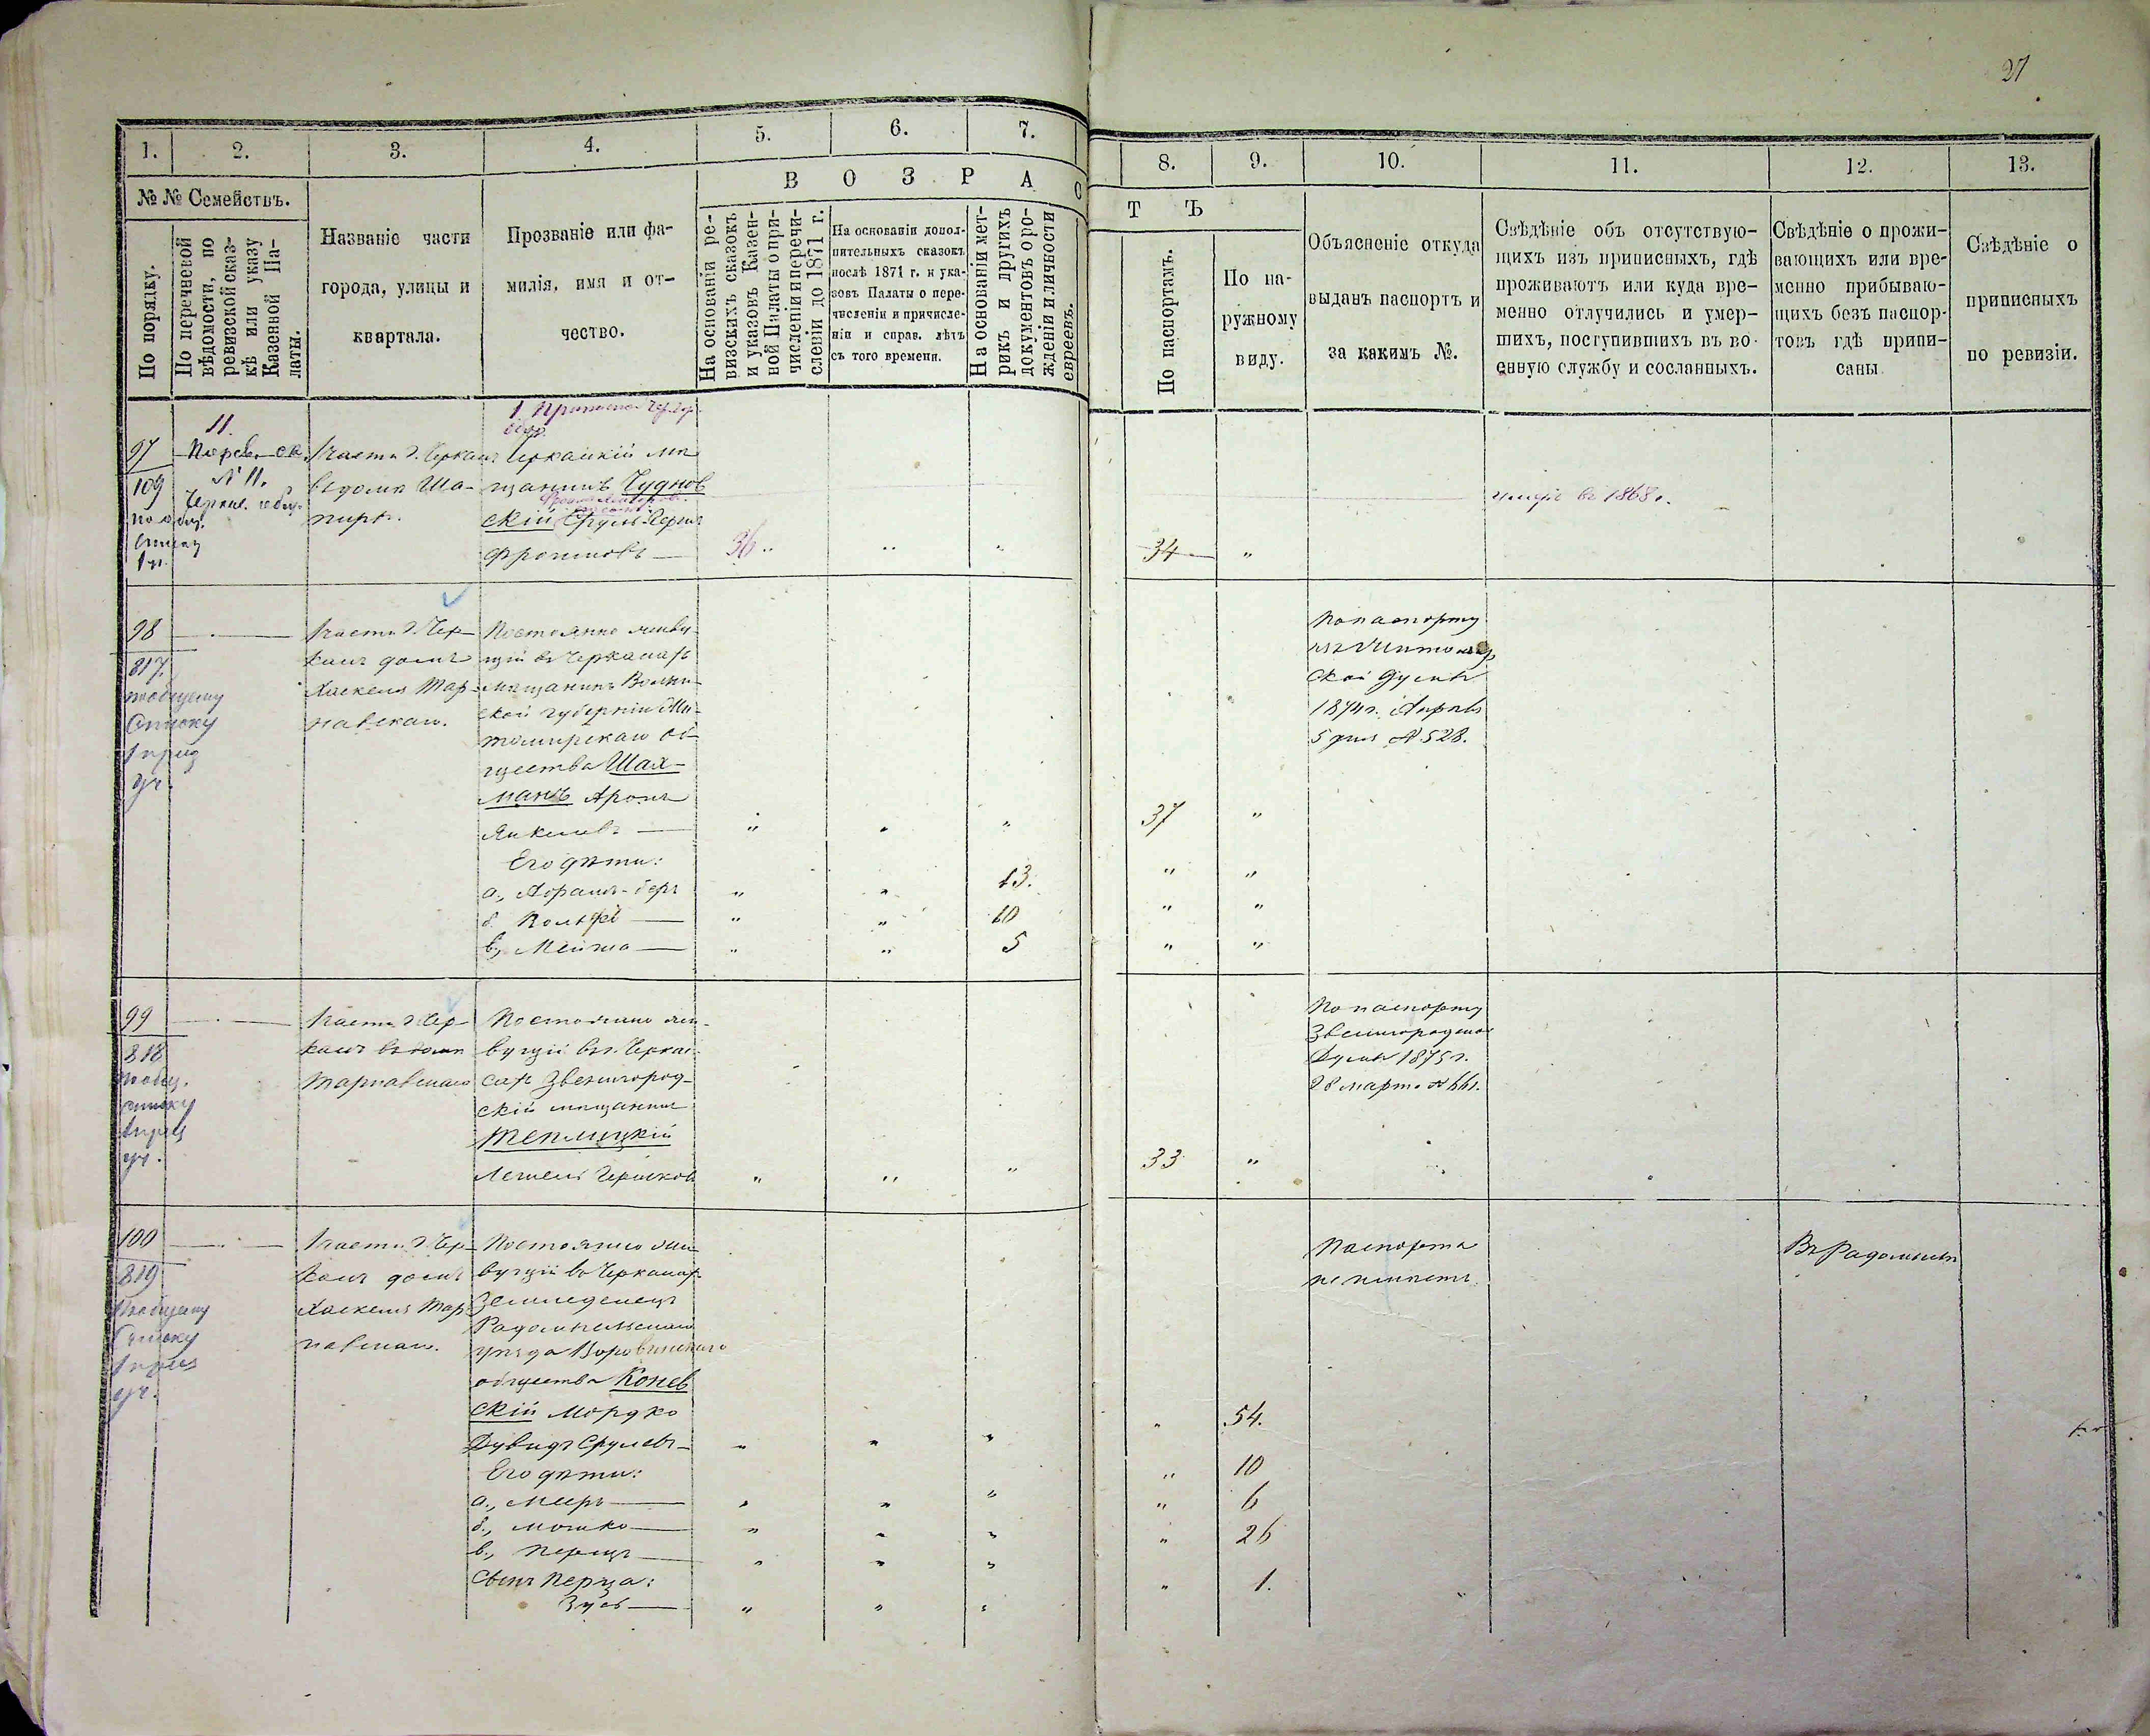 27
1.
2.
3.
4.
5.
6.
7.
8.
9.
10.
11.
12.
13.
№ № Семействъ.
По порядку.
По перечневой
вѣдомости, по
ревизской сказ-
кѣ или указу
Казенной Па-
латы.
Названіе части
города, улицы и
квартала.
Прозваніе или фа-
милія, имя и от-
чество.
В О З Р А С
Т Ъ
На основаніи ре-
визскихъ сказокъ
и указовъ Казен-
ной Палаты о при-
численіи и перечи-
сленіи до 1871 г.
На основаніи допол-
нительныхъ сказокъ
послѣ 1871 г. и ука-
зовъ Палаты о пере-
численіи и причисле-
ніи и справ. лѣтъ
съ того времени.
На основаніи мет-
рикъ и другихъ
документовъ о ро-
жденіи и личности
евреевъ.
По паспортамъ.
По на-
ружному
виду.
Объясненіе откуда
выданъ паспортъ и
за какимъ №.
Свѣдѣніе объ отсутствую-
щихъ изъ приписныхъ, гдѣ
проживаютъ или куда вре-
менно отлучились и умер-
шихъ, поступившихъ въ во-
енную службу и сосланныхъ.
Свѣдѣніе о прожи-
вающихъ или вре-
менно прибываю-
щихъ безъ паспор-
товъ гдѣ припи-
саны
Свѣдѣніе о
приписныхъ
по ревизіи.
97
109
11.
№ 11.
1 части г. Черкасъ
въ домѣ Ша-
пиры.
Черкаскій мѣ
щанинъ Чуднов
скій Сруль
Фроимовъ
36 " "
34 "
умеръ въ 1868 г.
98
817
по общему
списку
1 части г. Чер-
касъ домъ
Хаскеля Тар-
навскаго.
Постоянно живу-
щій въ Черкасахъ
мѣщанинъ Волын-
ской губерніи Жи-
томирскаго об-
щества Шах-
манъ Аронъ
Янкелевъ " " " 37 "
Его дѣти:
а., Абрамъ-беръ " " 13. " "
б. " " 10 " "
в., " " 5 " "
По паспорту
изъ Житомир
ской Думы
1874 г. Апрѣля
5 дня № 528.
99
818
1 части г. Чер-
касъ въ домѣ
Тарнавскаго
Постоянно жи-
вущій въ г. Черкас-
сахъ Звенигород-
скій мѣщанинъ
Теплицкій
Гершковъ " " " 33 "
По паспорту
Звенигородской
Думы 1875 г.
28 марта № 661.
100
819
По общему
списку
1 части г. Чер-
касъ домъ
Хаскеля Тар
навскаго.
Постоянно жи-
вущій въ Черкасахъ
Земледелецъ
Радомысльскаго
уѣзда
общества Конев
скій Мордко
Дувидъ Срулевъ " " " " 54.
Его дѣти:
а., Меиръ " " " " 10
б., Мошко " " " " 6
в., Перецъ " " " " 26
Сынъ Перца:
Зусь " " " " 1.
Паспорта
не имѣетъ.
Въ Радомыслѣ